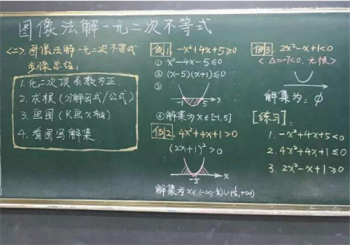 图像法解一元二次不等式
<二> 图像法解一元二次不等式
步骤总结:
1. 化二次项系数为正
2. 求根(分解因式/公式)
3. 画图(只画x轴)
4. 看图写解集
例1 -x²+4x+5≥0
① x²-4x-5≤0
② (x-5)(x+1)≤0
③
④ 解集为x∈[-1,5]
例2 4x²+4x+1>0
(2x+1)²>0
解集为x∈(-∞,-½)∪(-½,+∞)
例3 2x²-x+1<0
<△=-7<0, 无根>
解集为: ∅
[练习]:
1. -x²+4x+5<0
2. 4x²+4x+1≤0
3. 2x²-x+1≥0